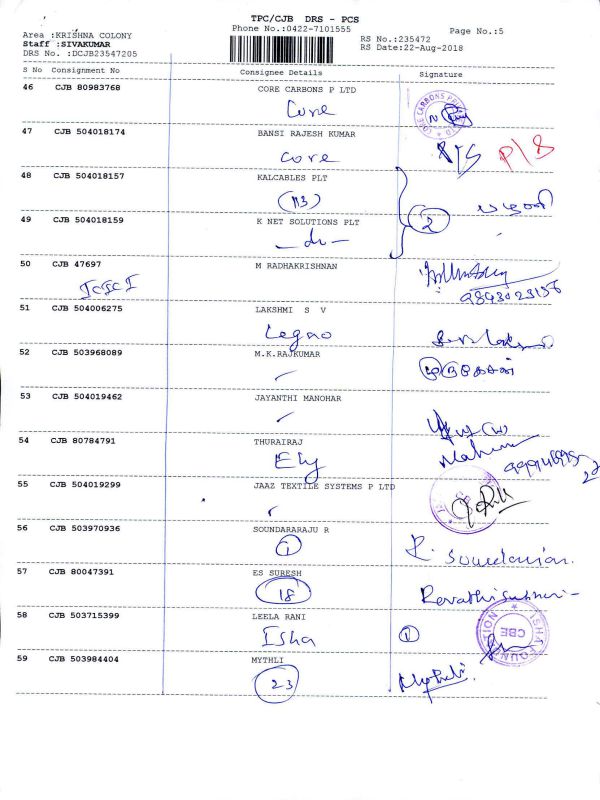 TPC/CJB DRS - PCS
Area :KRISHNA COLONY
Phone No.:0422-7101555
Page No.:5
Staff :SIVAKUMAR
RS No.:235472
DRS No. :DCJB23547205
RS Date:22-Aug-2018
S No Consignment No Consignee Details Signature
46 CJB 80983768 CORE CARBONS P LTD
Core
47 CJB 504018174 BANSI RAJESH KUMAR
core P/S
48 CJB 504018157 KALCABLES PLT
(113) 2
49 CJB 504018159 K NET SOLUTIONS PLT
- do -
50 CJB 47697 M RADHAKRISHNAN
ICICI
51 CJB 504006275 LAKSHMI S V
Legno
52 CJB 503968089 M.K.RAJKUMAR
53 CJB 504019462 JAYANTHI MANOHAR
54 CJB 80784791 THURAIRAJ
Ely
55 CJB 504019299 JAAZ TEXTILE SYSTEMS P LTD
56 CJB 503970936 SOUNDARARAJU R
1 R. Soundarian.
57 CJB 80047391 ES SURESH
18
58 CJB 503715399 LEELA RANI
Isha 1 ISHA FOUNDATION CBE
59 CJB 503984404 MYTHLI
23 Mythili